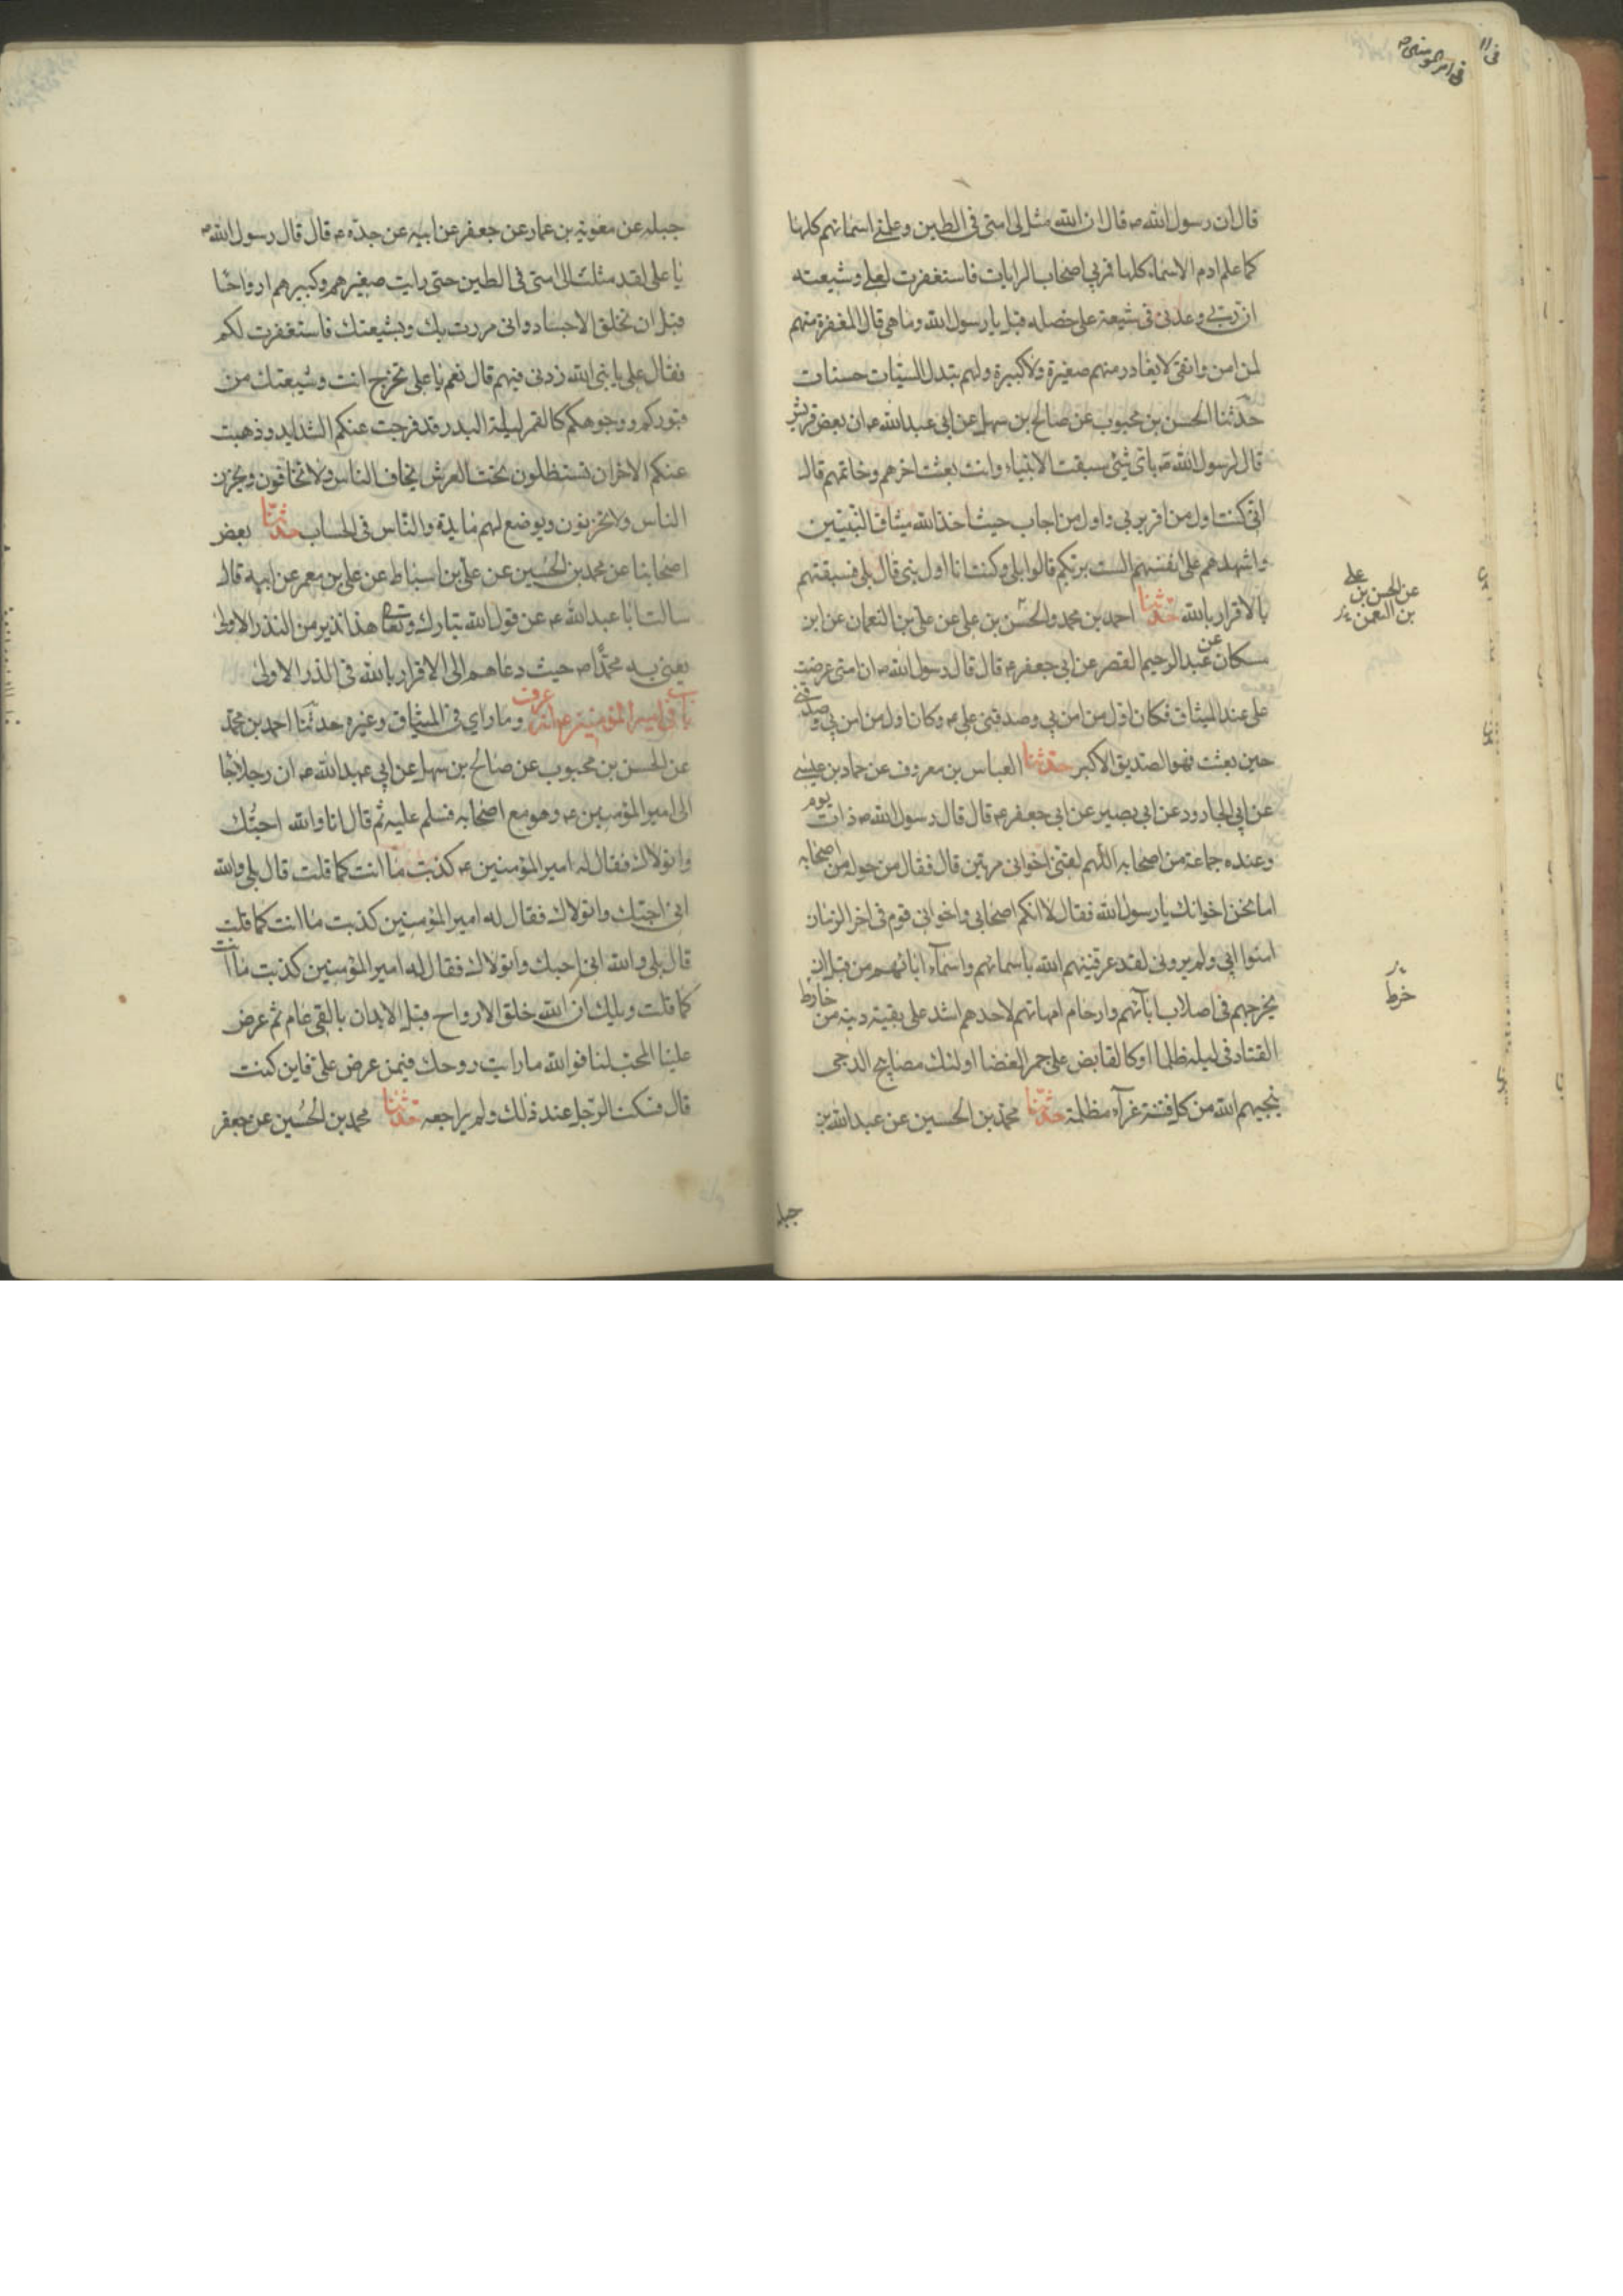 في امير المومنين ص
قال ان رسول الله ص قال ان الله مثل لي امتي في الطين وعلمني اسمائهم كلها
كما علم ادم الاسماء كلها فمر بي اصحاب الرايات فاستغفرت لعلي وشيعته
ان ربي وعدني في شيعة علي خصله قيل يا رسول الله وما هي قال المغفرة منهم
لمن امن واتقى لا يغادر منهم صغيرة ولا كبيرة ولهم تبدل السيئات حسنات
حدثنا الحسن بن محبوب عن صالح بن سهل عن ابي عبد الله ع ان بعض قريش
قال لرسول الله ص باي شيئ سبقت الانبياء وانت بعثت اخرهم وخاتمهم قال
اني كنت اول من اقر بربي واول من اجاب حيث اخذ الله ميثاق النبيين
واشهدهم على انفسهم الست بربكم قالوا بلى وكنت انا اول نبي قال بلى فسبقتهم
بالاقرار بالله حدثنا احمد بن محمد والحسن بن علي عن علي بن النعمان عن ابن
عن الحسن بن علي
بن النعمن
سكان عن عبد الرحيم القصر عن ابي جعفر ع قال قال رسول الله ص ان امتي عرضت
علي عند الميثاق فكان اول من امن بي وصدقني علي ع وكان اول من امن بي وصدقني
حين بعثت فهو الصديق الاكبر حدثنا العباس بن معروف عن حماد بن عيسى
عن ابي الجارود عن ابي بصير عن ابي جعفر ع قال قال رسول الله ص ذات يوم
وعنده جماعة من اصحابه اللهم لقني اخواني مرتين قال فقال من حوله من اصحابه
اما نحن اخوانك يا رسول الله فقال لا انكم اصحابي واخواني قوم في اخر الزمان
امنوا بي ولم يروني لقد عرفنيهم الله باسمائهم واسماء ابائهم من قبل ان
يخرجهم في اصلاب ابائهم وارحام امهاتهم لاحدهم اشد على بقية دينه من خارط
خرط
القتاد في ليلة ظلما او كالقابض على جمر الغضا اولئك مصابيح الدجى
ينجيهم الله من كل فتنة غبرآء مظلمة حدثنا محمد بن الحسين عن عبد الله بن
جبله
جبله عن معوية بن عمار عن جعفر عن ابيه عن جده ع قال قال رسول الله ص
يا علي لقد مثلت الي امتي في الطين حتى رايت صغيرهم وكبيرهم ارواحا
قبل ان تخلق الاجساد واني مررت بك وبشيعتك فاستغفرت لكم
فقال علي يا نبي الله زدني فيهم قال نعم يا علي تخرج انت وشيعتك من
قبوركم ووجوهكم كالقمر ليلة البدر قد فرجت عنكم الشدايد وذهبت
عنكم الاحزان تستظلون تحت العرش يخاف الناس ولا تخافون ويحزن
الناس ولا تحزنون ويوضع لهم مايدة والناس في الحساب حدثنا بعض
اصحابنا عن محمد بن الحسين عن علي بن اسباط عن علي بن معمر عن ابيه قال
سالت ابا عبد الله ع عن قول الله تبارك وتعالى هذا نذير من النذر الاولى
يعني به محمدا ص حيث دعاهم الى الاقرار بالله في الذر الاولى
باب في امير المؤمنين ع انه عرف وما راى في الميثاق وغيره حدثنا احمد بن محمد
عن الحسن بن محبوب عن صالح بن سهل عن ابي عبد الله ع ان رجلا جا
الى امير المؤمنين ع وهو مع اصحابه فسلم عليه ثم قال انا والله احبك
واتولاك فقال له امير المؤمنين ع كذبت ما انت كما قلت قال بلى والله
اني احبك واتولاك فقال له امير المؤمنين كذبت ما انت كما قلت
قال بلى والله اني احبك واتولاك فقال له امير المؤمنين كذبت ما انت
كما قلت ويلك ان الله خلق الارواح قبل الابدان بالفي عام ثم عرض
علينا المحب لنا فوالله ما رايت روحك فيمن عرض علي فاين كنت
قال فسكت الرجل عند ذلك ولم يراجعه حدثنا محمد بن الحسين عن جعفر